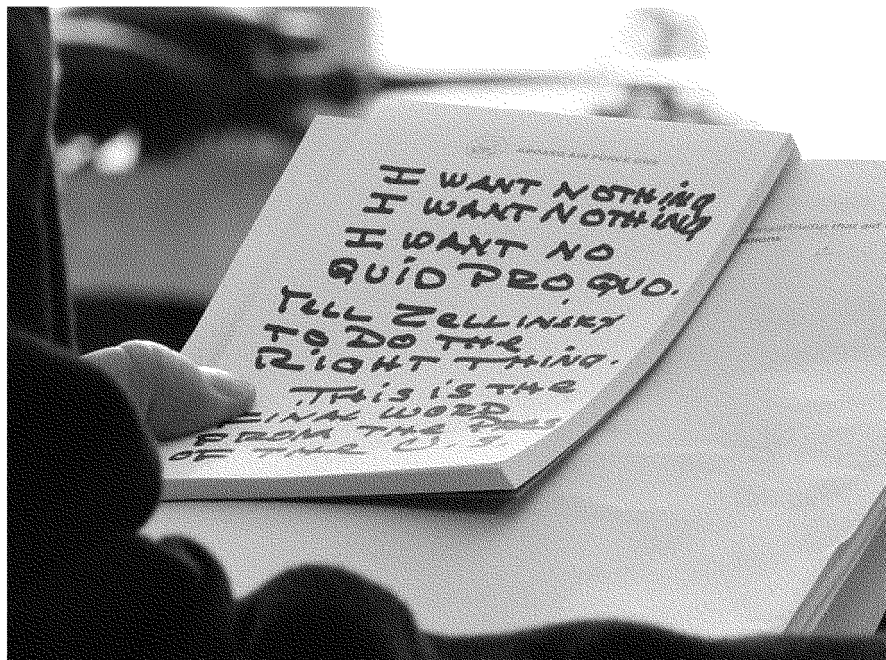 I WANT NOTHING
I WANT NOTHING
I WANT NO
QUID PRO QUO.
TELL ZELLINSKY
TO DO THE
RIGHT THING.
THIS IS THE
FINAL WORD
FROM THE PRES
OF THE U.S